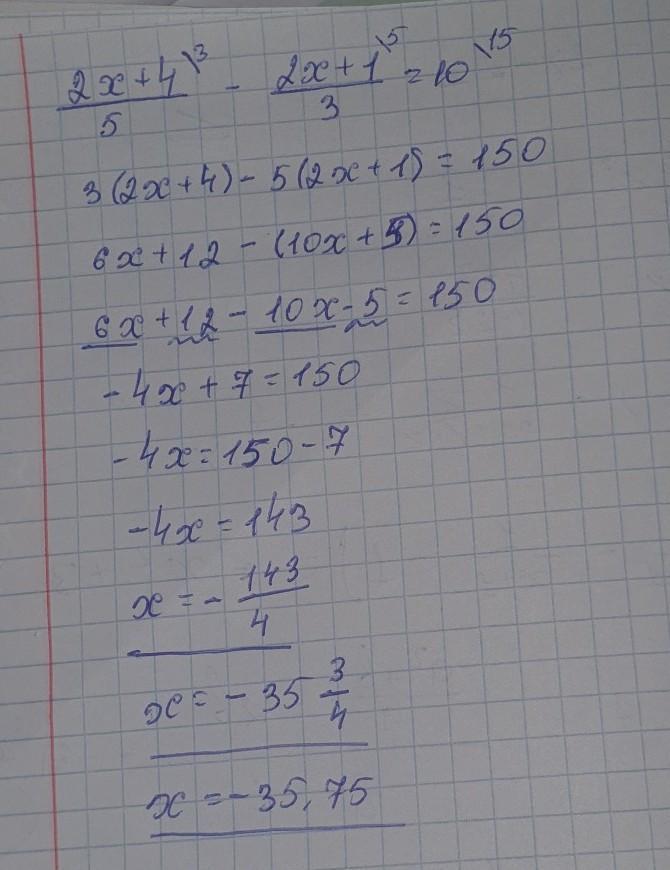 (2x+4)/5 \3 - (2x+1)/3 \5 = 10 \15
3(2x+4) - 5(2x+1) = 150
6x + 12 - (10x + 5) = 150
6x + 12 - 10x - 5 = 150
-4x + 7 = 150
-4x = 150 - 7
-4x = 143
x = - 143/4
x = - 35 3/4
x = -35,75